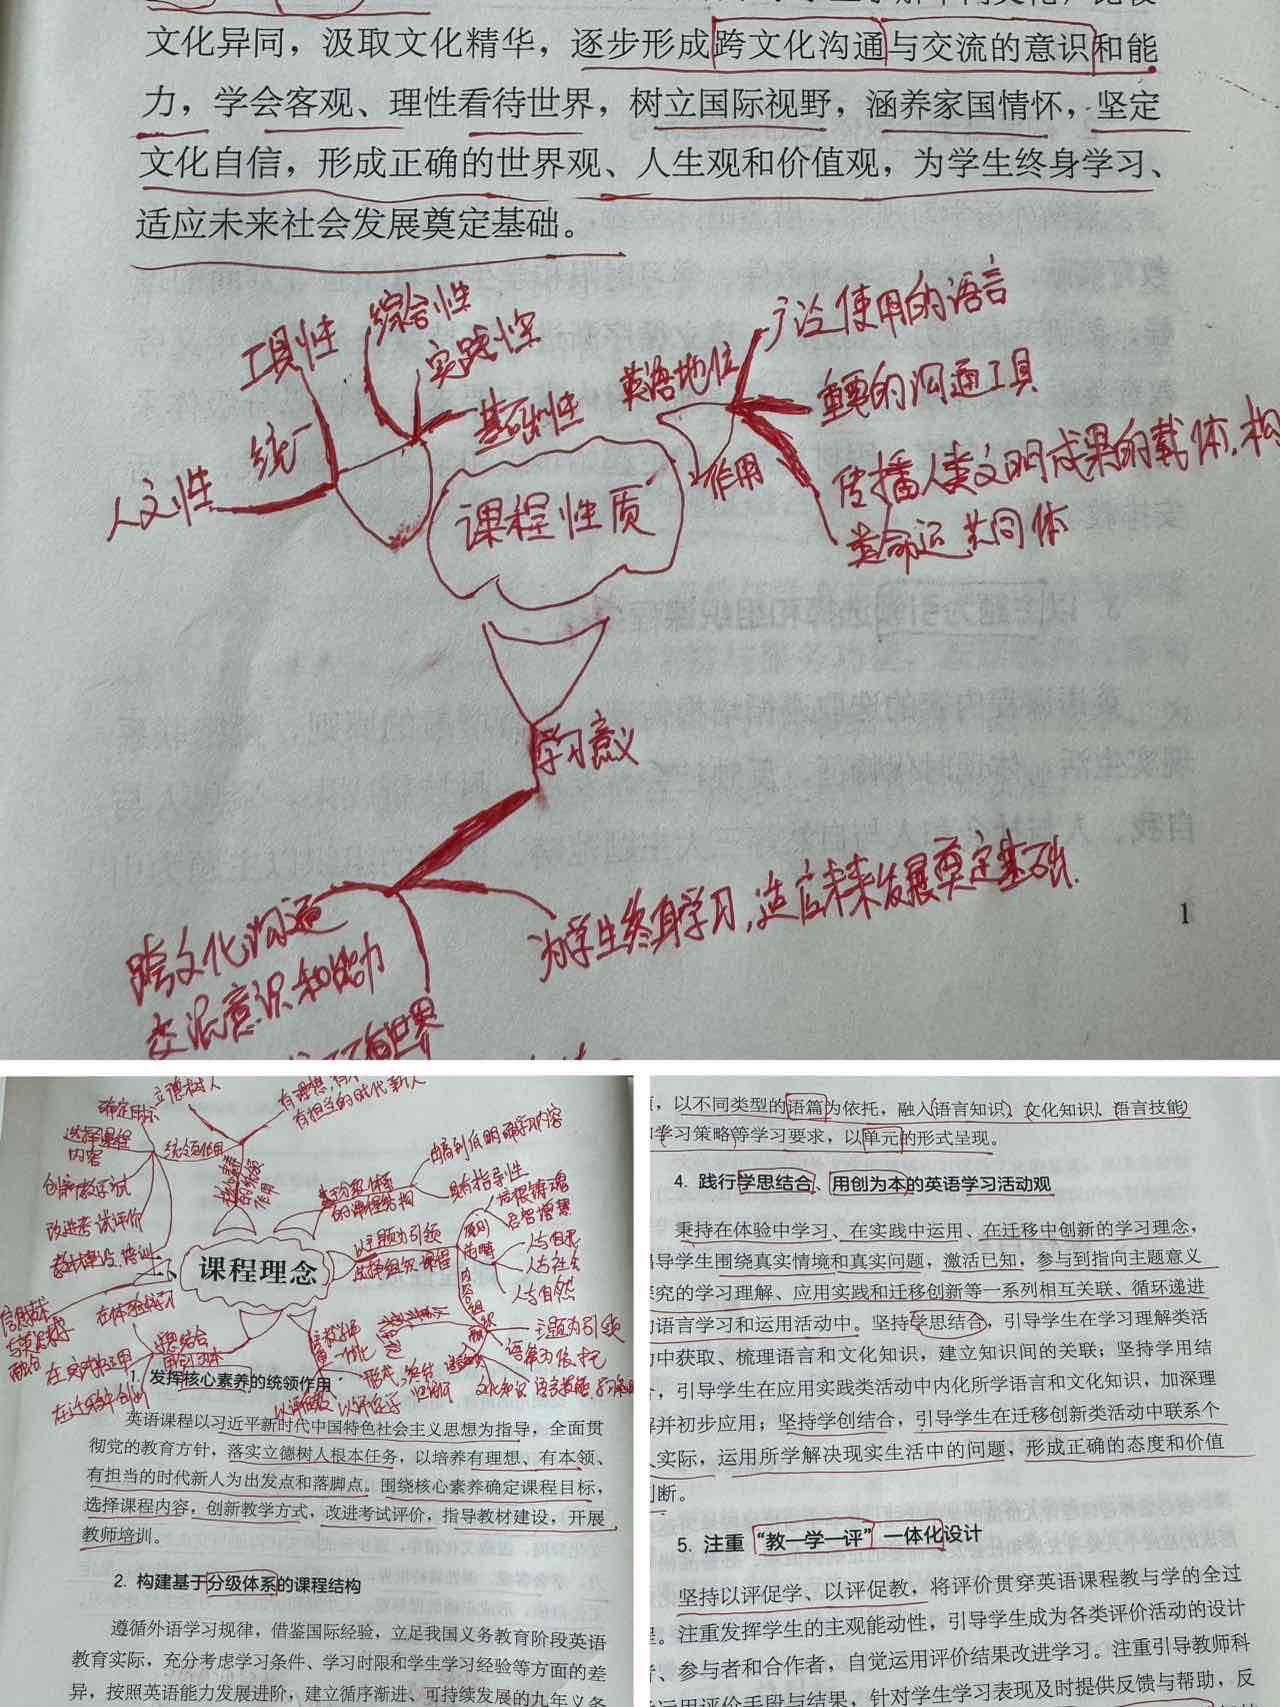 文化异同，汲取文化精华，逐步形成跨文化沟通与交流的意识和能
力，学会客观、理性看待世界，树立国际视野，涵养家国情怀，坚定
文化自信，形成正确的世界观、人生观和价值观，为学生终身学习、
适应未来社会发展奠定基础。
工具性
综合性
实践性
基础性
统一
人文性
课程性质
英语地位
作用
广泛使用的语言
重要的沟通工具
传播人类文明成果的载体,构
类命运共同体
学习意义
跨文化沟通
交流意识和能力
看世界
为学生终身学习,适应未来发展奠定基础.
1
立德树人
有理想,有
有担当的时代新人
确定目标
选择课程
内容
统领作用
创新教学方式
改进考试评价
教材建设,培训
课程理念
的课程结构
以主题为引领
选择组织课程
原则
范畴
内容组织
培根铸魂
启智增慧
人与自我
人与社会
人与自然
主题为引领
语篇为依托
文化知识 语言技能
在体验中学习
学思结合
用创为本
在实践中运用
在迁移中创新
一体化
以评促教
以评促学
1. 发挥核心素养的统领作用
英语课程以习近平新时代中国特色社会主义思想为指导，全面贯
彻党的教育方针，落实立德树人根本任务，以培养有理想、有本领、
有担当的时代新人为出发点和落脚点。围绕核心素养确定课程目标，
选择课程内容，创新教学方式，改进考试评价，指导教材建设，开展
教师培训。
2. 构建基于分级体系的课程结构
遵循外语学习规律，借鉴国际经验，立足我国义务教育阶段英语
教育实际，充分考虑学习条件、学习时限和学生学习经验等方面的差
异，按照英语能力发展进阶，建立循序渐进、可持续发展的九年义务
，以不同类型的语篇为依托，融入语言知识、文化知识、语言技能
学习策略等学习要求，以单元的形式呈现。
4. 践行学思结合、用创为本的英语学习活动观
秉持在体验中学习、在实践中运用、在迁移中创新的学习理念，
导学生围绕真实情境和真实问题，激活已知，参与到指向主题意义
究的学习理解、应用实践和迁移创新等一系列相互关联、循环递进
语言学习和运用活动中。坚持学思结合，引导学生在学习理解类活
中获取、梳理语言和文化知识，建立知识间的关联；坚持学用结
，引导学生在应用实践类活动中内化所学语言和文化知识，加深理
并初步应用；坚持学创结合，引导学生在迁移创新类活动中联系个
实际，运用所学解决现实生活中的问题，形成正确的态度和价值
断。
5. 注重“教—学—评”一体化设计
坚持以评促学、以评促教，将评价贯穿英语课程教与学的全过
。注重发挥学生的主观能动性，引导学生成为各类评价活动的设计
、参与者和合作者，自觉运用评价结果改进学习。注重引导教师科
运用评价手段与结果，针对学生学习表现及时提供反馈与帮助，反